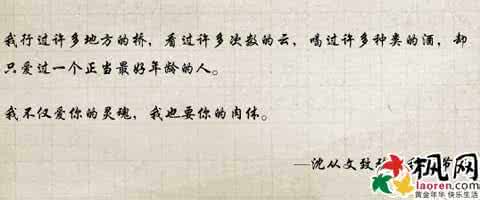 我行过许多地方的桥，看过许多次数的云，喝过许多种类的酒，却
只爱过一个正当最好年龄的人。
我不仅爱你的灵魂，我也要你的肉体。
——沈从文致
枫网
laoren.com
黄金年华 快乐生活